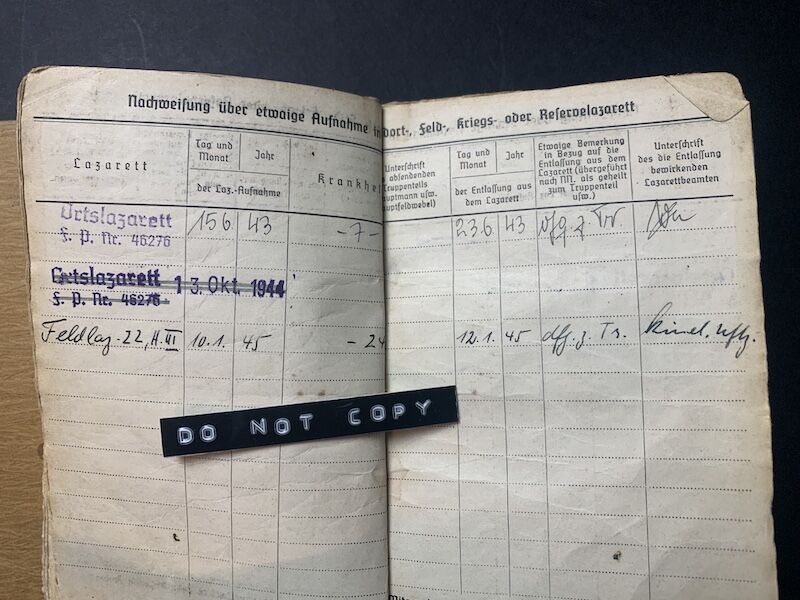 Nachweisung über etwaige Aufnahme in
dort-, Feld-, Kriegs- oder Reservelazarett
Lazarett
Tag und
Monat
Jahr
der Laz.-Aufnahme
Krankhe
Unterschrift
absendenden
Truppenteils
uptmann usw.
uptfeldwebel)
Tag und
Monat
Jahr
der Entlassung aus
dem Lazarett
Etwaige Bemerkung
in Bezug auf die
Entlassung aus dem
Lazarett (überge­führt
nach NN. als geheilt
zum Truppenteil
usw.)
Unterschrift
des die Entlassung
bewirkenden
Lazarettbeamten
Ortslazarett
F. P. Nr. 46276
15 6. 43
- 7 -
23.6. 43
Ortslazarett 13. Okt. 1944
F. P. Nr. 46276
Feldlaz. 22, H. III 10.1. 45 - 24
12.1. 45 dfg. z. Tr.
DO NOT COPY